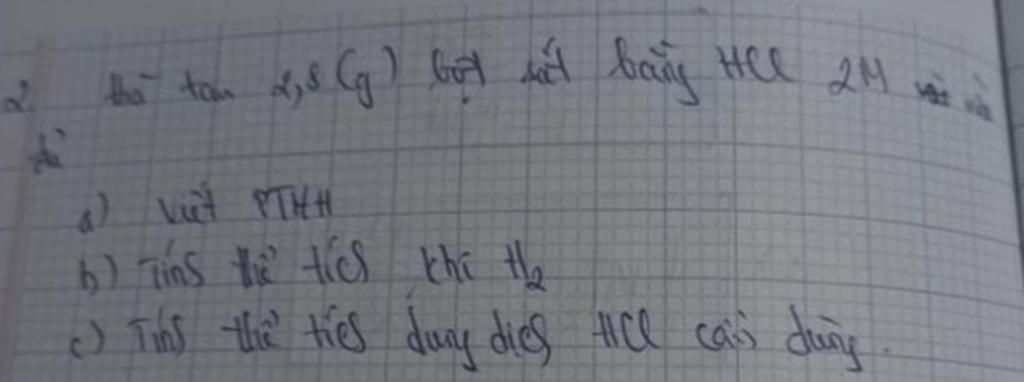 2. Hoà tan 2,8 (g) bột sắt bằng HCl 2M vừa
đủ
a) Viết PTHH
b) Tính thể tích khí H2
c) Tính thể tích dung dịch HCl cần dùng.